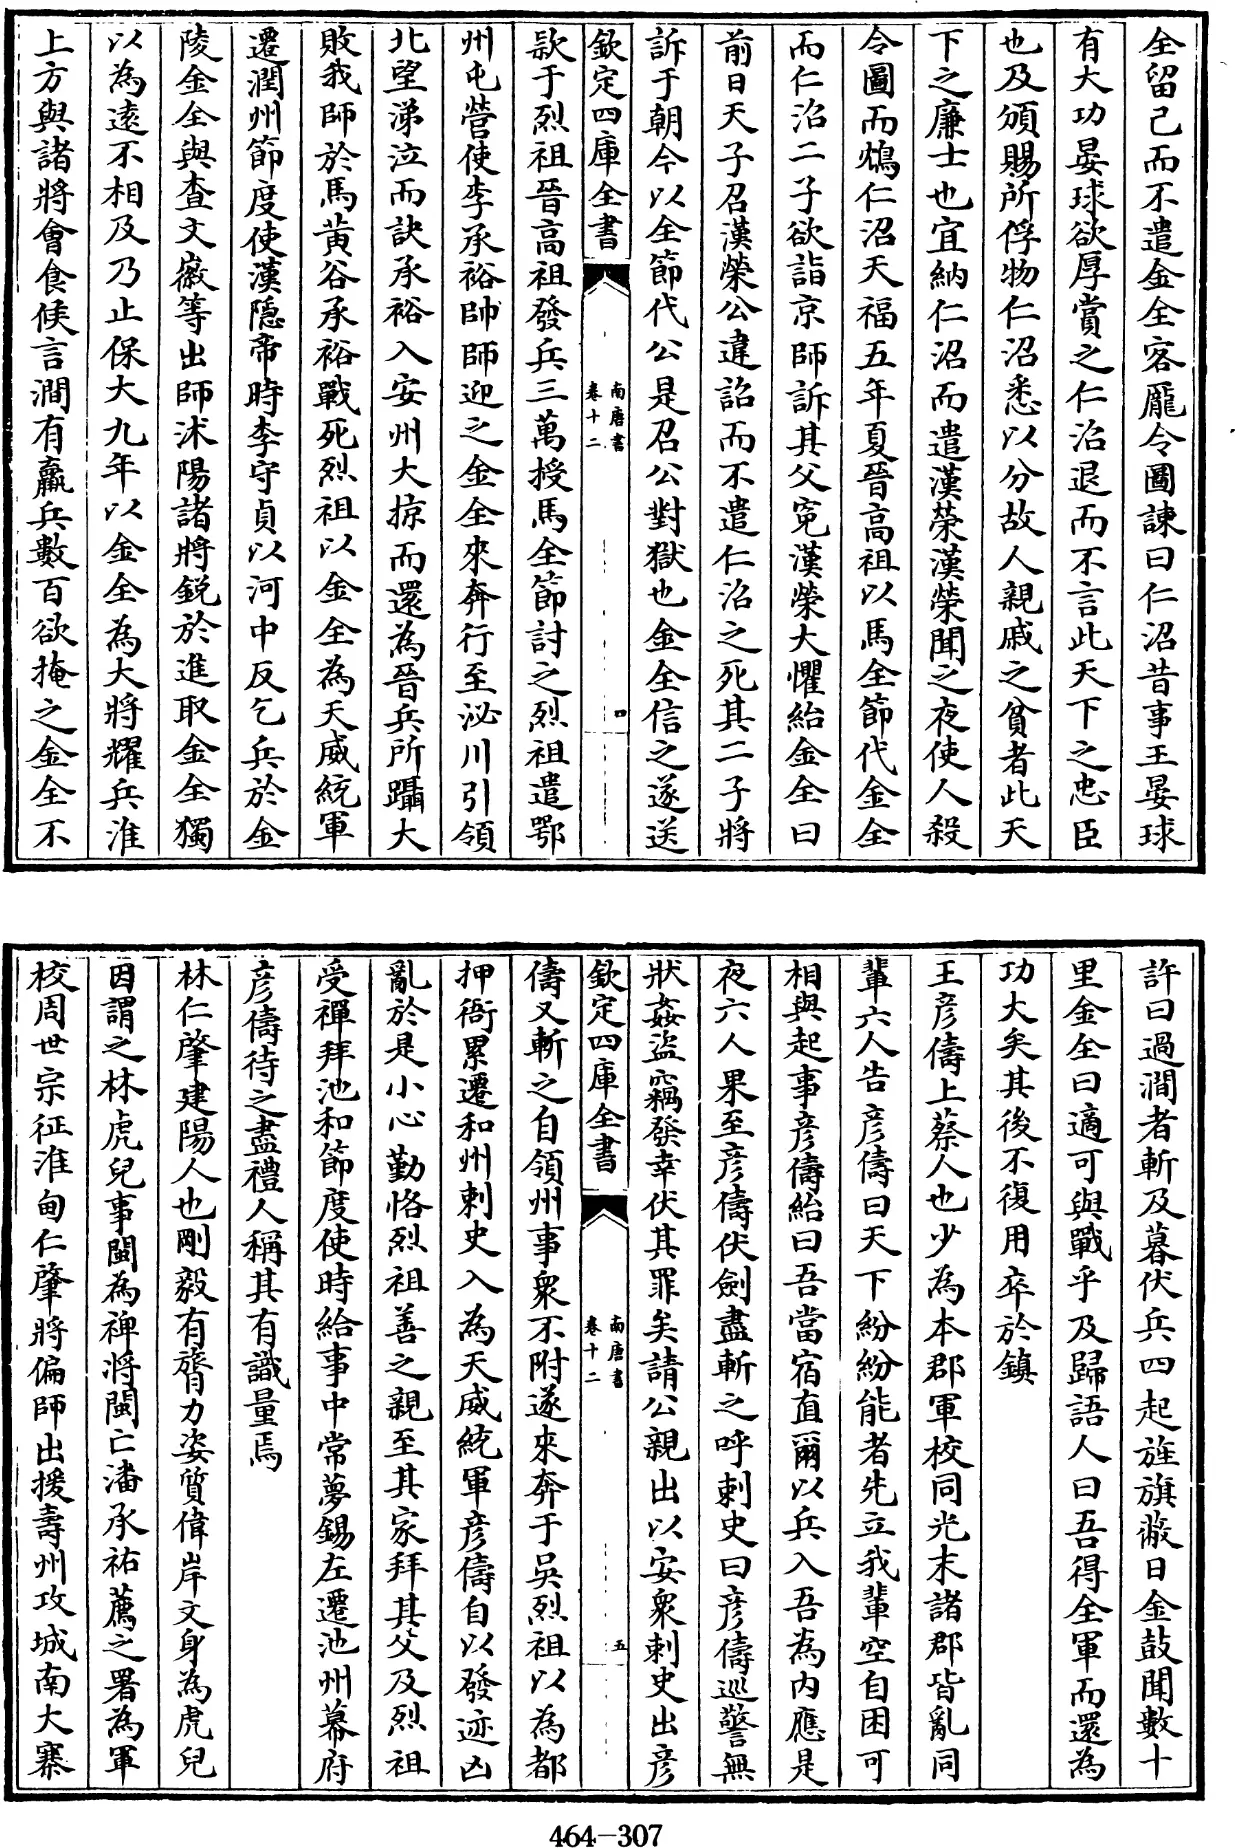 全留己而不遣金全客龐令圖諫曰仁沼昔事王晏球
有大功晏球欲厚賞之仁沼退而不言此天下之忠臣
也及頒賜所俘物仁沼悉以分故人親戚之貧者此天
下之廉士也宜納仁沼而遣漢榮漢榮聞之夜使人殺
令圖而鴆仁沼天福五年夏晉高祖以馬全節代金全
而仁沼二子欲詣京師訴其父寃漢榮大懼紿金全曰
前日天子召漢榮公違詔而不遣仁沼之死其二子將
訴于朝今以全節代公是召公對獄也金全信之遂送
欽定四庫全書
南唐書
卷十二
四
欵于烈祖晉高祖發兵三萬授馬全節討之烈祖遣鄂
州屯營使李承裕帥師迎之金全來奔行至泌川引領
北望涕泣而訣承裕入安州大掠而還為晉兵所躡大
敗我師於馬黃谷承裕戰死烈祖以金全為天威統軍
遷潤州節度使漢隱帝時李守貞以河中反乞兵於金
陵金全與查文徽等出師沭陽諸將銳於進取金全獨
以為遠不相及乃止保大九年以金全為大將耀兵淮
上方與諸將會食候言澗有羸兵數百欲掩之金全不
許曰過澗者斬及暮伏兵四起旌旗蔽日金鼓聞數十
里金全曰適可與戰乎及歸語人曰吾得全軍而還為
功大矣其後不復用卒於鎮
王彦儔上蔡人也少為本郡軍校同光末諸郡皆亂同
輩六人告彦儔曰天下紛紛能者先立我輩空自困可
相與起事彦儔紿曰吾當宿直爾以兵入吾為内應是
夜六人果至彦儔伏劍盡斬之呼刺史曰彦儔巡警無
狀姦盜竊發幸伏其罪矣請公親出以安衆刺史出彦
欽定四庫全書
南唐書
卷十二
五
儔又斬之自領州事衆不附遂來奔于吳烈祖以為都
押衙累遷和州刺史入為天威統軍彦儔自以發迹凶
亂於是小心勤恪烈祖善之親至其家拜其父及烈祖
受禪拜池和節度使時給事中常夢錫左遷池州幕府
彦儔待之盡禮人稱其有識量焉
林仁肇建陽人也剛毅有膂力姿質偉岸文身為虎兒
因謂之林虎兒事閩為裨將閩亡潘承祐薦之署為軍
校周世宗征淮甸仁肇將偏師出援壽州攻城南大寨
464-307